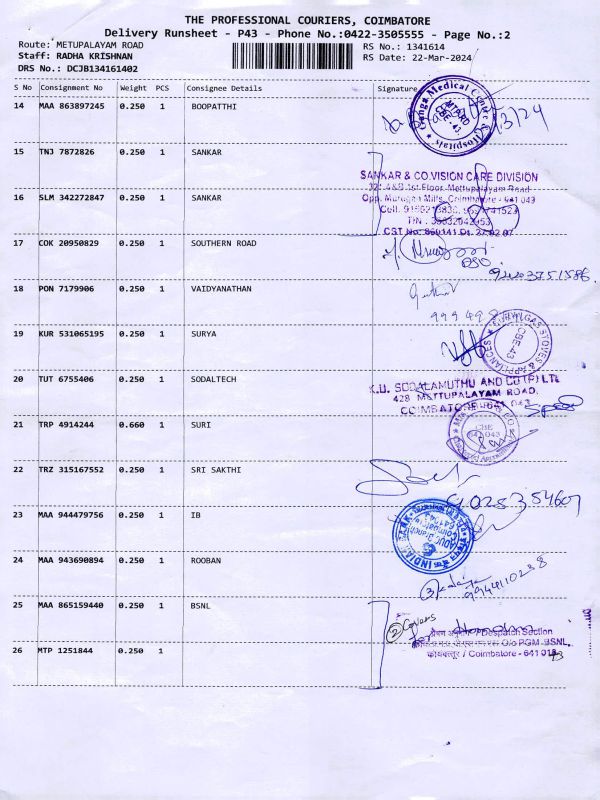 THE PROFESSIONAL COURIERS, COIMBATORE
Delivery Runsheet - P43 - Phone No.:0422-3505555 - Page No.:2
Route: METUPALAYAM ROAD
RS No.: 1341614
Staff: RADHA KRISHNAN
RS Date: 22-Mar-2024
DRS No.: DCJB134161402
S No Consignment No Weight PCS Consignee Details Signature
14 MAA 863897245 0.250 1 BOOPATTHI
Ganga Medical Centre & Hospitals
15 TNJ 7872826 0.250 1 SANKAR
SANKAR & CO.VISION CARE DIVISION
321-A&B 1st Floor, Mettupalayam Road
16 SLM 342272847 0.250 1 SANKAR
Opp. Murugan Mills, Coimbatore - 641 043
17 COK 20950829 0.250 1 SOUTHERN ROAD
18 PON 7179906 0.250 1 VAIDYANATHAN
19 KUR 531065195 0.250 1 SURYA
GAS STOVES & APPLIANCES
CBE-43
20 TUT 6755406 0.250 1 SODALTECH
K.U. SODALAMUTHU AND CO (P) LTD
428 METTUPALAYAM ROAD,
COIMBATORE-641 043
21 TRP 4914244 0.660 1 SURI
CBE
641 043
22 TRZ 315167552 0.250 1 SRI SAKTHI
23 MAA 944479756 0.250 1 IB
INDIAN BANK
24 MAA 943690894 0.250 1 ROOBAN
9944110288
25 MAA 865159440 0.250 1 BSNL
2 Covers
/ Despatch Section
O/o PGM, BSNL,
26 MTP 1251844 0.250 1
कोयंबत्तूर / Coimbatore - 641 043